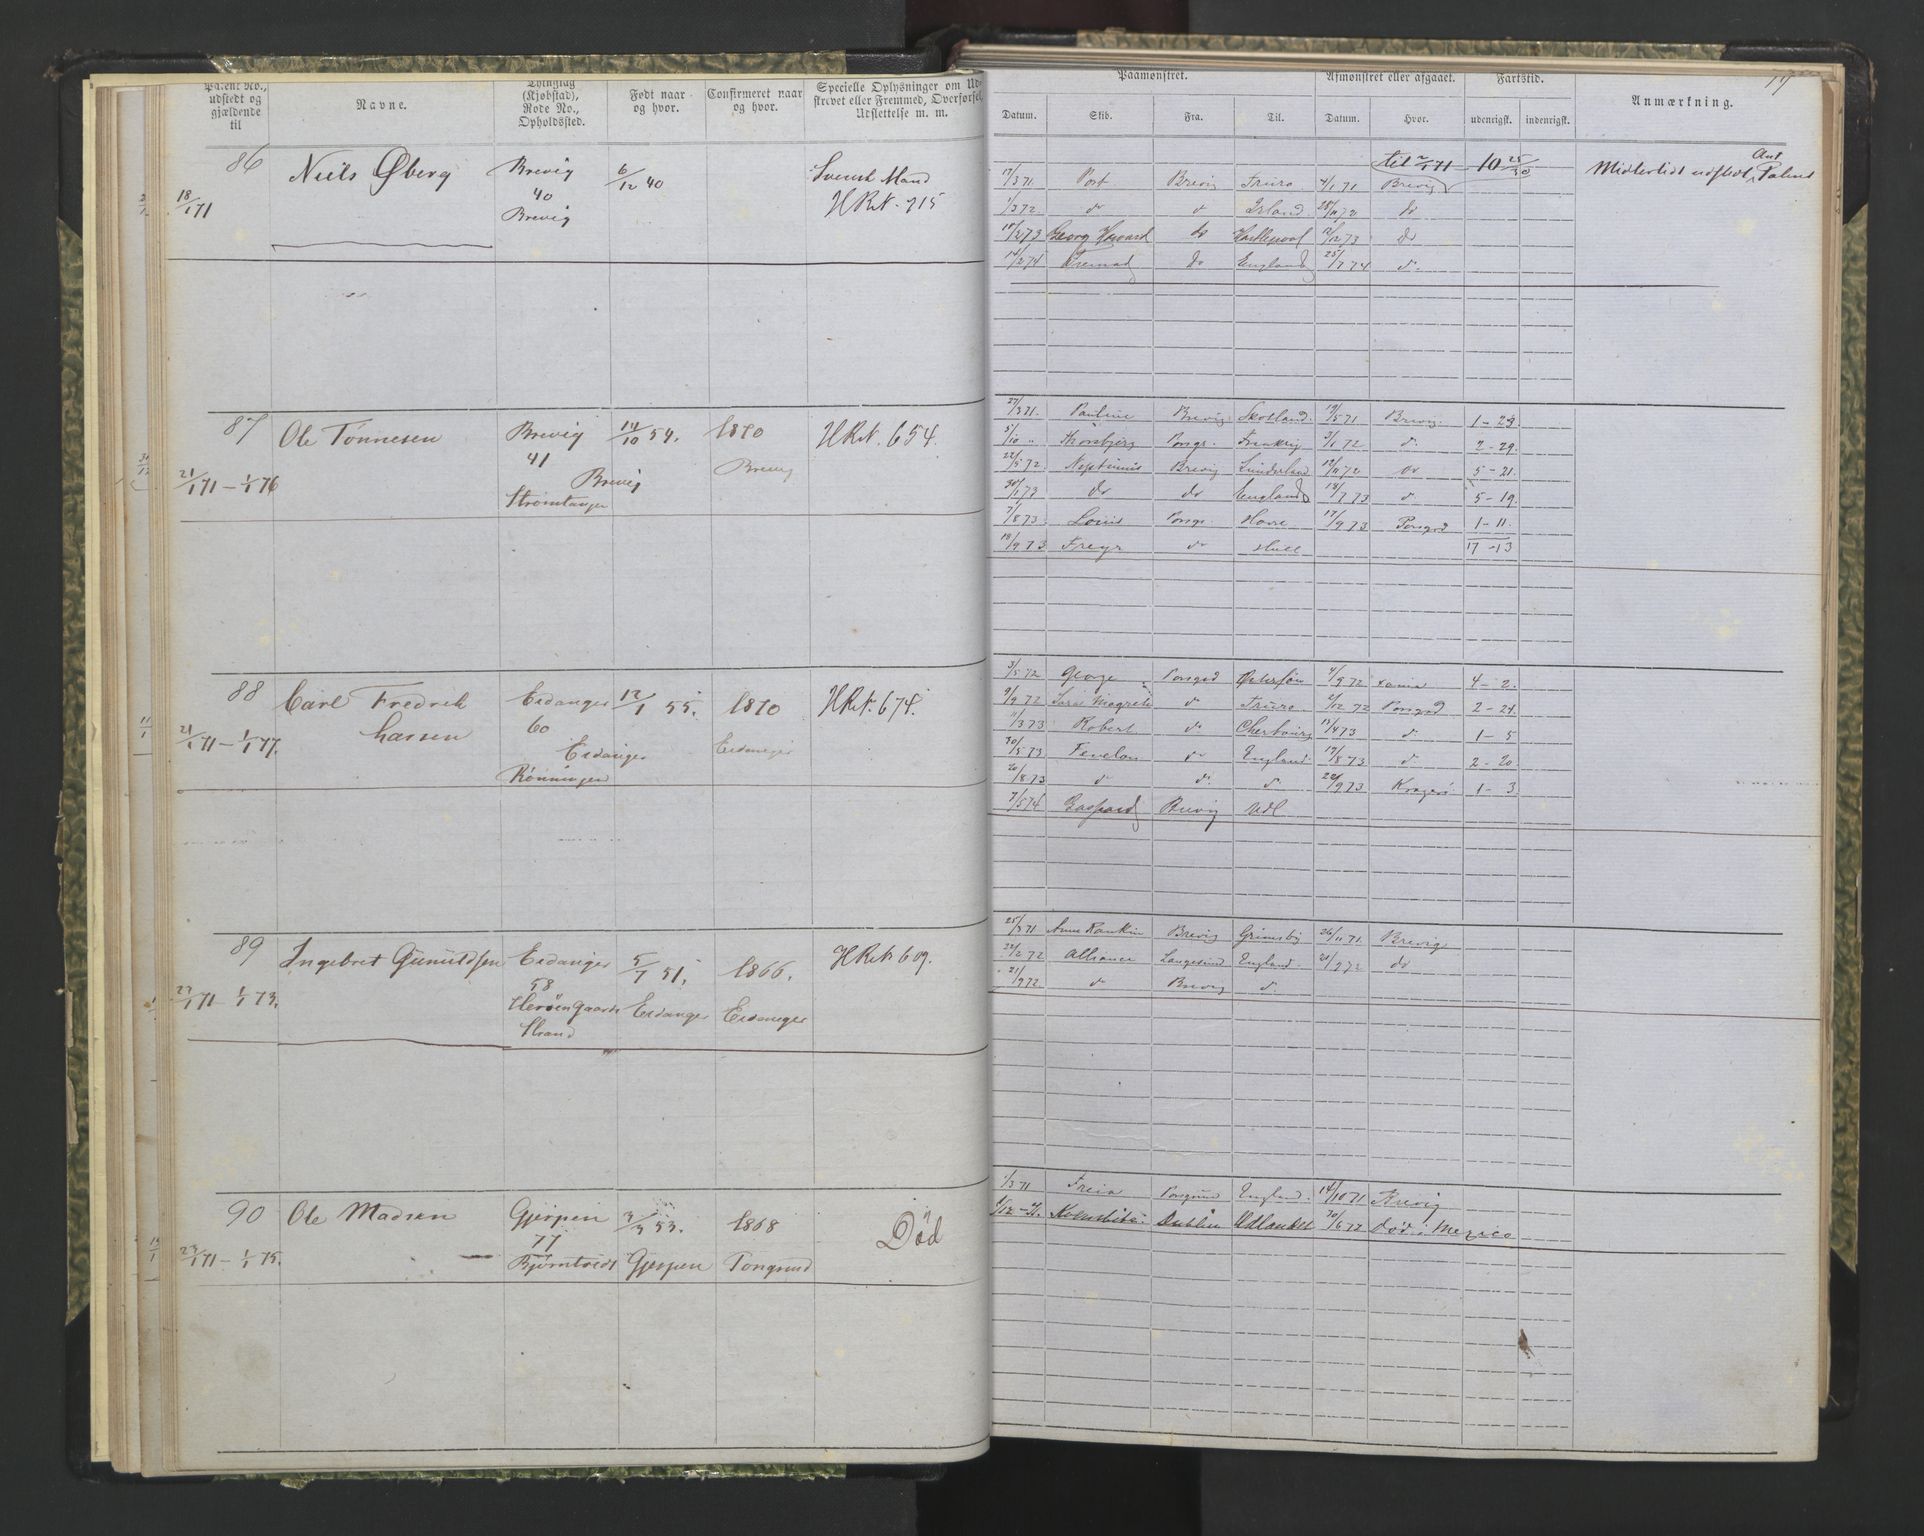 Patent No., udstedt og gjældende til
Navne.
Thinglag (Kjøbstad), Rode No., Opholdssted.
Født naar og hvor.
Confirmeret naar og hvor.
Specielle Oplysninger om Udskrevet eller Fremmed, Overførsel, Udslettelse m. m.
Paamønstret.
Afmønstret eller afgaaet.
Fartstid.
Anmærkning.
Datum. Skib. Fra. Til. Datum. Hvor. udenrigsk. indenrigsk.
86 Niels Øberg Brevig 6/12 40 Svensk Mand
18/1 71 40 H Rt. 715
Brevig
til 2/1 71 10 25/30 Midlertidt udstedt Ant Patent
17/3 71 Port Brevig Truro 4/1 71 Brevig
1/3 72 do d Irland 28/11 72 do
17/2 73 Georg Howard do Hartlepool 12/12 73 do
14/2 74 do England 25/7 74 d.
87 Ole Tønnesen Brevig 14/10 54. 1870 H Rt. 654.
41 Brevig
21/1 71 – 1/1 76 Brevig
Strømtangen
27/3 71. Pauline Brevig Skotland. 19/5 71 Brevig. 1 - 23
5/10 " Porsgr. Frankrig 3/1 72 d. 2 - 29.
22/5 72 Neptunus Brevig Sunderland 12/11 72 do 5 - 21.
30/1 73 do do England 18/7 73 d. 5 - 19.
7/8 73 Louis Porsgr Havre 17/9 73 Porsgrd 1 - 11.
18/9 73 Freyr do Hull 17 - 13
88 Carl Fredrik Eidanger 12/1 55. 1870 H Rt. 674.
Larsen 60
21/1 71 – 1/1 77. Eidanger Eidanger
Rønningen
3/5 72 George Porsgrd Østersøen 4/9 72 4 - 2.
9/9 72 Sara Magrete d Truro. 2/12 72 Porsgrd 2 - 24.
11/3 73 Robert d Cherbourg 15/4 73 d 1 - 5
30/5 73 Fenelon do England 19/8 73 d 2 - 20.
20/8 73 d d. d. 22/9 73 Kragerö 1 - 3
7/5 74 Gaspard Brevig Udl
89 Ingebret Gunuldsen Eidanger 5/7 51. 1866. H Rt. 609.
58
23/1 71 – 1/1 73. Herøen Gaards Eidanger Eidanger
Strand
25/3 71 Anne Rankin Brevig Grimsby 26/11 71 Brevig
22/2 72 Alliance Langesund England. 21/9 72 do
21/9 72 d Brevig d.
90 Ole Madsen Gjerpen 3/3 53. 1868 Død
77
23/1 71 – 1/1 75. Bjørntvedt Gjerpen Porsgrund
1/3 71 Freia Porsgrund England. 14/10 71 Brevig
Dublin Udlandet 30/6 72 Død i Mexico